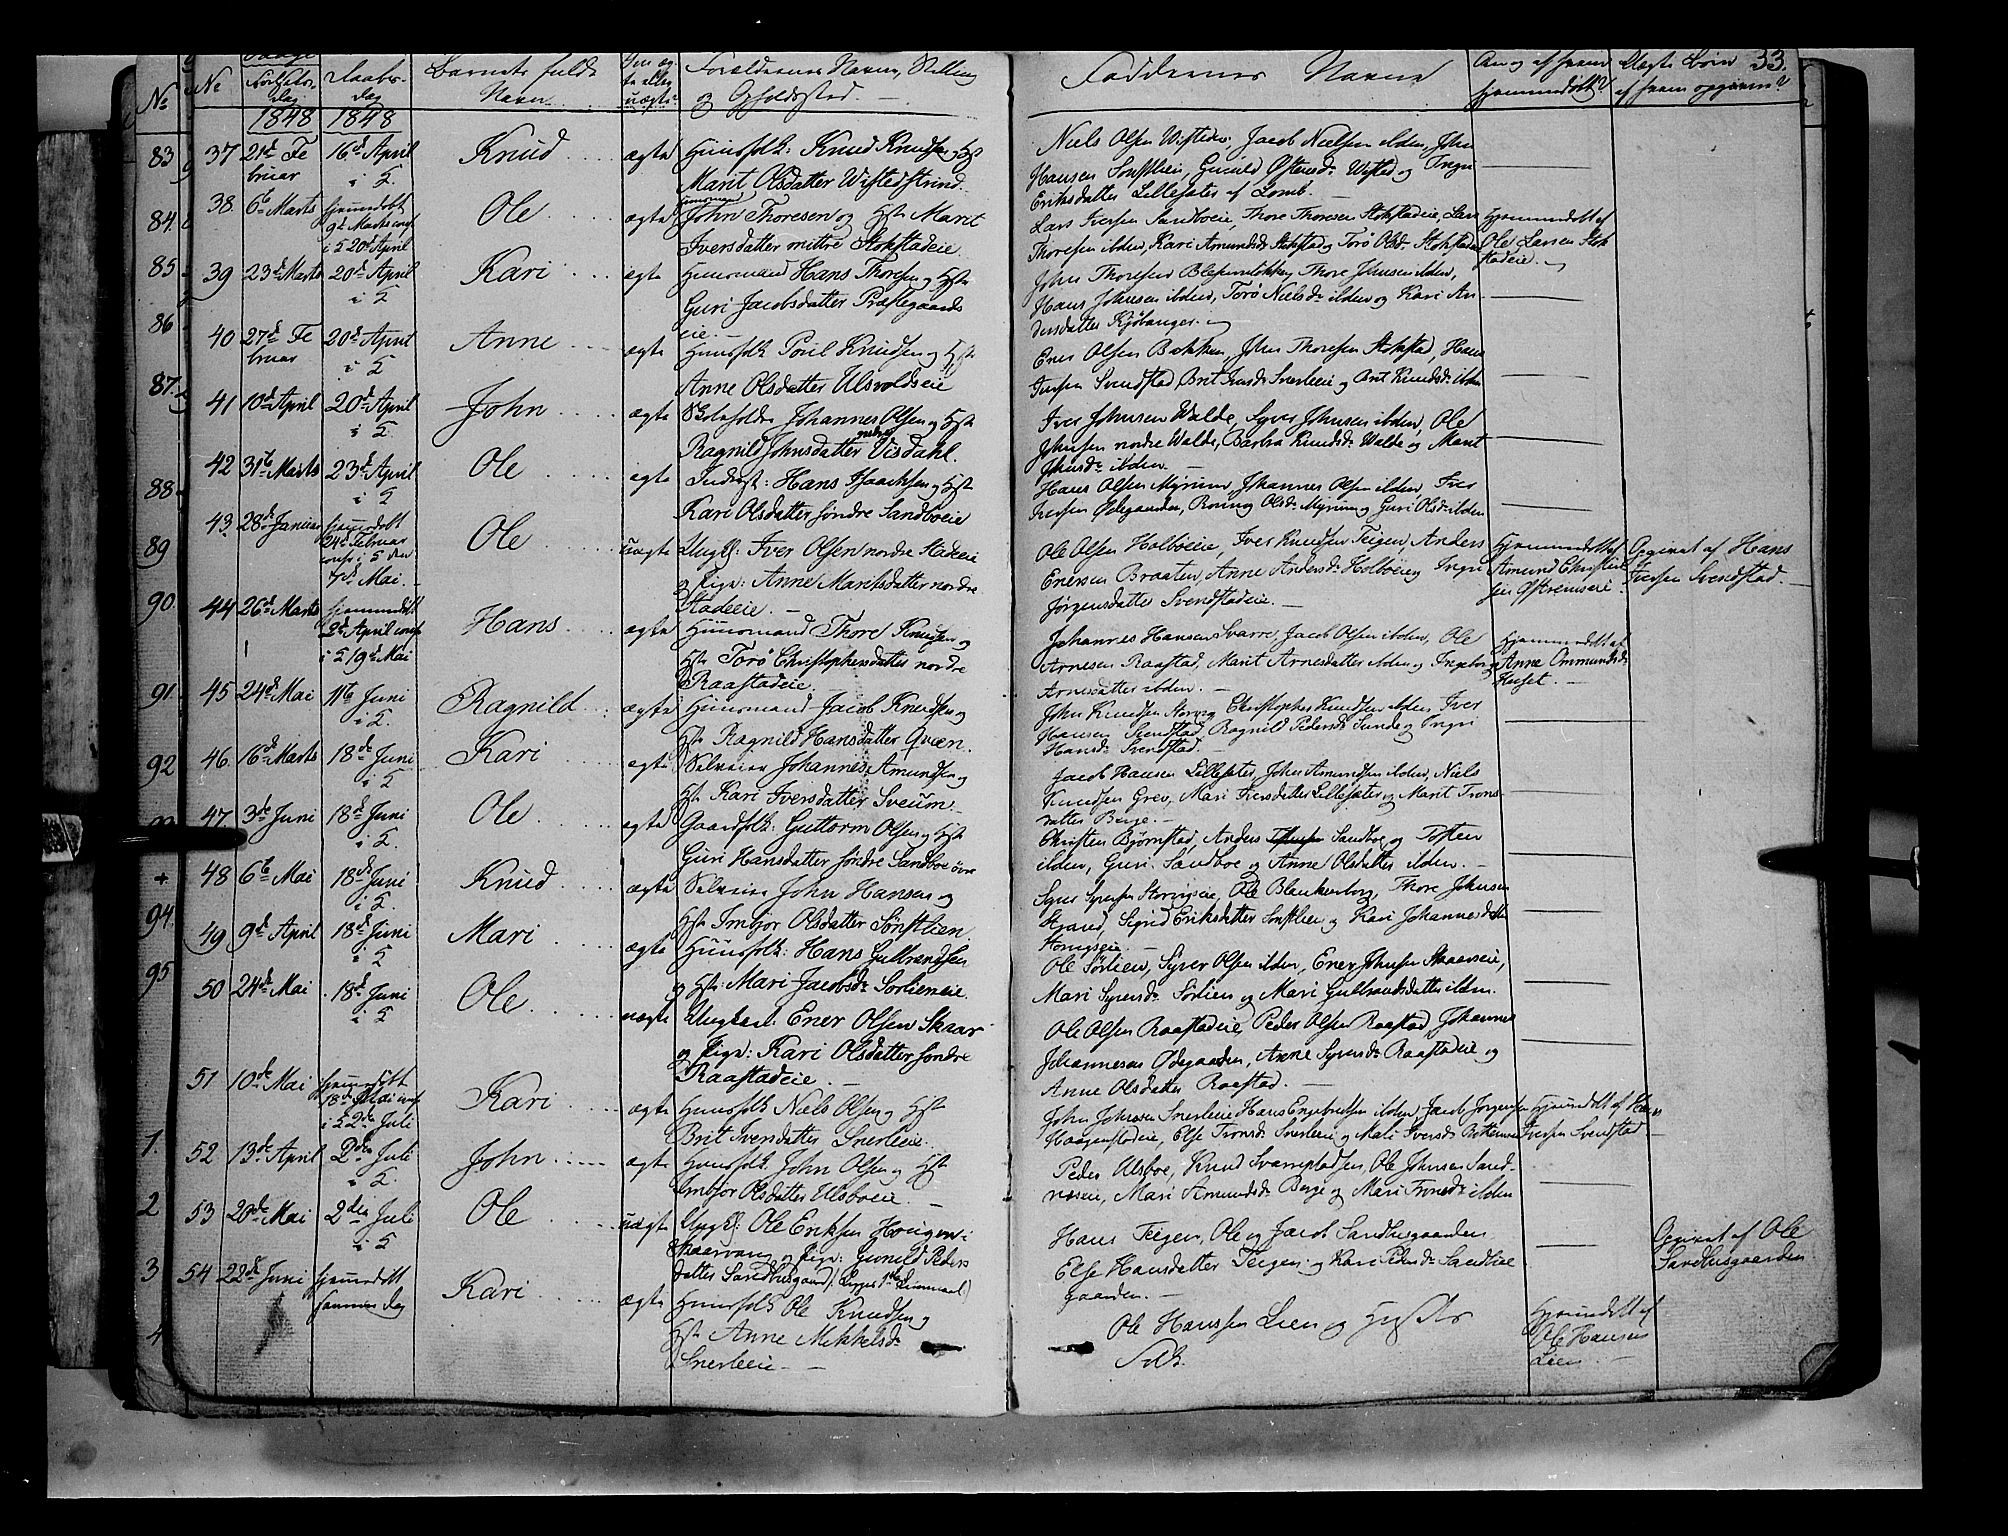 33.
No
No
Fødsels-
dag
Daabs-
dag
Barnets fulde
Navn
Om æg-
te eller
uægte
Forældrenes Navne, Stilling
og Opholdssted.
Faddernes Navne
1848 1848
83 37 21de Fe
bruar 16de April
i K.
Knud
ægte
Huusfolk: Knud Knudsen og Hst
Marit Olsdatter Wistedstrind.
Niels Olsen Wisteds, Jacob Nielsen ibden, John
Hansen Sonstlien, Gunild Ostensd. Wisted og Ingri
Eriksdatter Lillesæter af Lomb.
84. 38. 6te Marts hjemmedøbt
9de Marts conf
i K 20de April
Ole
ægte
Huusmand
John Thoresen og Hst. Marit
Iversdatter mittre Stokstadeie
Lars Iversen Sandboeie, Thore Thoresen Stokstadeie, Lars
Thoresen ibden, Kari Amundsd. Stokstad og Torø Olsd. Stokstad
Hjemmedøbt af
Ole Larsen Stok
stadeie.
85 39 23de Marts 20de April
i K
Kari
ægte
Huusmand Hans Thoresen og Hst
Guri Jacobsdatter Præstegaards
eie.
John Thoresen Blessumløkken, Thore Johnsen ibden,
Hans Johnsen ibden, Torø Nielsd. ibden og Kari An-
dersdatter Kjøbanger.
86 40 27de Fe
bruar 20de April
i K
Anne
ægte
Huusfolk Poul Knudsen og Hst
Anne Olsdatter Ulsvoldseie
Ener Olsen Bakken, John Thoresen Stokstad, Hans
Iversen Svendstad, Brit Iversd. Snerleeie og Brit Knudsd. ibden
87. 41 10de April 20de April
i K.
John
ægte
Skoleholder Johannes Olsen og Hst
Ragnild Johnsdatter nedre Visdahl.
Iver Johnsen Walde, Syver Johnsen ibden, Ole
Johnsen nordre Walde, Barbra Knudsd. Walde og Marit
Johnsd. ibden.
88 42 31te Marts 23de April
i K
Ole
ægte
Inderst: Hans Isaachsen og Hst
Kari Olsdatter søndre Sandboeie
Hans Olsen Myrum, Johannes Olsen ibden, Iver
Iversen Ødegaarden, Ronnog Olsd. Myrum og Guri Olsd. ibden
89 43 28de Januar hjemmedøbt
24de Februar
conf. i K den
7de Mai.
Ole
uægte
Ungk: Iver Olsen nordre Stadeeie
og Pige: Anne Maritsdatter nordre
Stadeeie.
Ole Olsen Holboeie, Iver Knudsen Teigen, Anders
Enersen Braaten, Anne Andersd. Holboeie og Ingri
Jørgensdatter Svendstadeie.
Hjemmedøbt af
Amund Christen
sen
Opgivet af Hans
Iversen Svendstad.
90. 44 26de Marts hjemmedøbt
2de April conf
i K 19de Mai
Hans
ægte
Huusmand Thore Knudsen og
Hst. Torø Christophersdatter nordre
Raastadeie.
Johannes Hansen Svarre, Jacob Olsen ibden, Ole
Arnesen Raastad, Marit Arnesdatter ibden og Ingeborg
Arnesdatter ibden.
Hjemmedøbt af
Anne Ommundsd.
Huset.
91. 45 24de Mai 11te Juni
i K.
Ragnild
ægte
Huusmand Jacob Knudsen og
Hst. Ragnild Hansdatter Qvæn.
John Knudsen Storvig Christopher Knudsen ibden Iver
Hansen Svendstad, Ragnild Pedersd. Sunde og Ingri
Hansd. Svendstad.
92 46. 16de Marts 18de Juni
i K
Kari
ægte
Selveier Johannes Amundsen og
Hst. Kari Iversdatter Sveum.
Jacob Hansen Lillesæter, John Amundsen ibden, Niels
Knudsen Grev, Mari Iversdatter Lillesæter og Marit Trons-
datter Berge.
47. 3de Juni 18de Juni
i K.
Ole
ægte
Gaardfolk: Guttorm Olsen og Hst
Guri Hansdatter søndre Sandboe øvre
Christen Bjørnstad, Anders Sandboe og Tosten
ibden, Guri Sandboe og Anne Olsdatter ibden.
+ 48 6te Mai 18de Juni
i K.
Knud
ægte
Selveier John Hansen og
Hst. Imbjor Olsdatter Sønstlien
Syver Syversen Storvigseie, Ole Blankenborg, Thore Johnsen
Strand, Sigrid Eriksdatter Sonstlien og Kari Johannesdatter
Storvigseie.
94 49 9de April 18de Juni
i K
Mari
ægte
Huusfolk: Hans Gulbrandsen
og Hst. Mari Jacobsd. Sørlieneie.
Ole Sørlien, Syver Olsen ibden, Ener Johnsen Skaareie,
Mari Syversd. Sørlien og Mari Gulbrandsdatter ibden.
95 50 24de Mai 18de Juni
i K
Ole
uægte
Ungkarl: Ener Olsen Skaar
og Pige: Kari Olsdatter søndre
Raastadeie.
Ole Olsen Raastadeie, Peder Olsen Raastad, Johannes
Johannesen Ødegaarden, Anne Syversd. Raastadeie og
Anne Olsdatter Raastad.
51 10de Mai hjemmedøbt
18de Mai conf
i K 2de Juli
Kari
ægte
Huusfolk Niels Olsen og Hst
Brit Iversdatter Snerleeie.
John Johnsen Snerleeie Hans Engebretsen ibden, Jacob Jørgensen
Haagenstadeie, Else Tronsd. Snerleeie og Mari Iversd.
Hjemmedøbt af Hans
Iversen Svendstad
1. 52 13de April 2den Juli
i K.
John
ægte
Huusfolk John Olsen og Hst
Imbjor Olsdatter Ulsboeie.
Peder Ulsboe, Knud Ole Johnsen Sand-
næseie, Mari Amundsd. Berge og Mari Tronsd. ibden
2 53 20de Mai 2den Juli
i K
Ole
uægte
Ungk: Ole Eriksen Hougen i
Skaarvang og Pige: Gunild Peders
datter Sandhusgaard (Begges 1ste Leiermaal)
Hans Teigen, Ole og Jacob Sandhusgaarden
Else Hansdatter Teigen og Kari Pedersd. Sandhus
gaarden.
Opgivet af Ole
Sandhusgaarden
3 54 22de Juni hjemmedøbt
samme Dag
Kari
ægte
Huusfolk Ole Knudsen og
Hst Anne Mikkelsd.
Snerleeie
Ole Hanssen Lien og
Hjemmedøbt af
Ole Hansen
Lien.
4